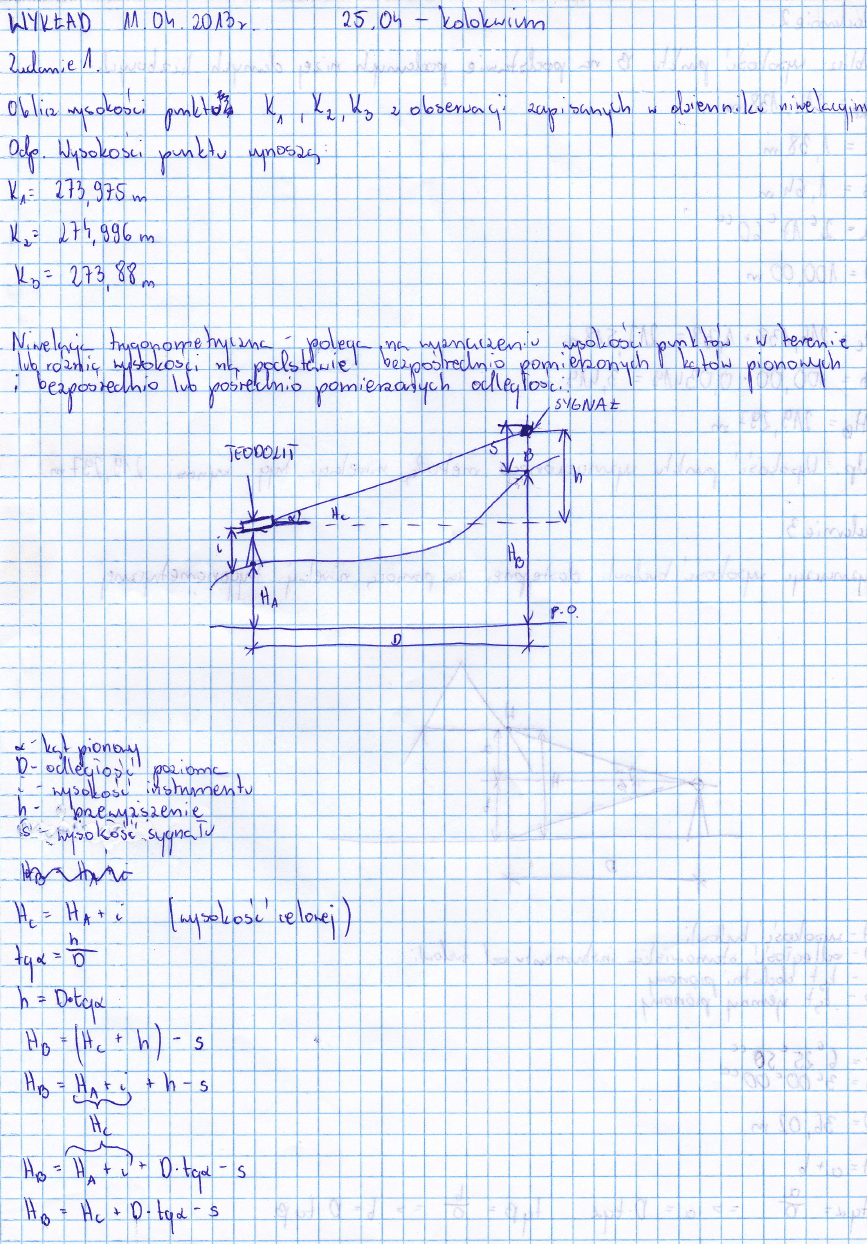 WYKŁAD 11.04.2013r. 25.04 - kolokwium
Zadanie 1.
Oblicz wysokości punktów K1, K2, K3 z obserwacji zapisanych w dzienniku niwelacyjnym
Odp. Wysokości punktu wynoszą:
K1= 273,975 m
K2= 274,996 m
K3= 273,88 m
Niwelacja trygonometryczna - polega na wyznaczeniu wysokości punktów w terenie
lub różnic wysokości na podstawie bezpośrednio pomierzonych kątów pionowych
i bezpośrednio lub pośrednio pomierzonych odległości.
SYGNAŁ
TEODOLIT
S
B
h
α
Hc
i
HB
HA
P.O.
D
α - kąt pionowy
D - odległość pozioma
i - wysokość instrumentu
h - przewyższenie
s - wysokość sygnału
Hc = HA + i (wysokość celowej)
tgα = h/D
h = D·tgα
HB = (Hc + h) - s
HB = HA + i + h - s
Hc
HB = HA + i + D·tgα - s
HB = Hc + D·tgα - s